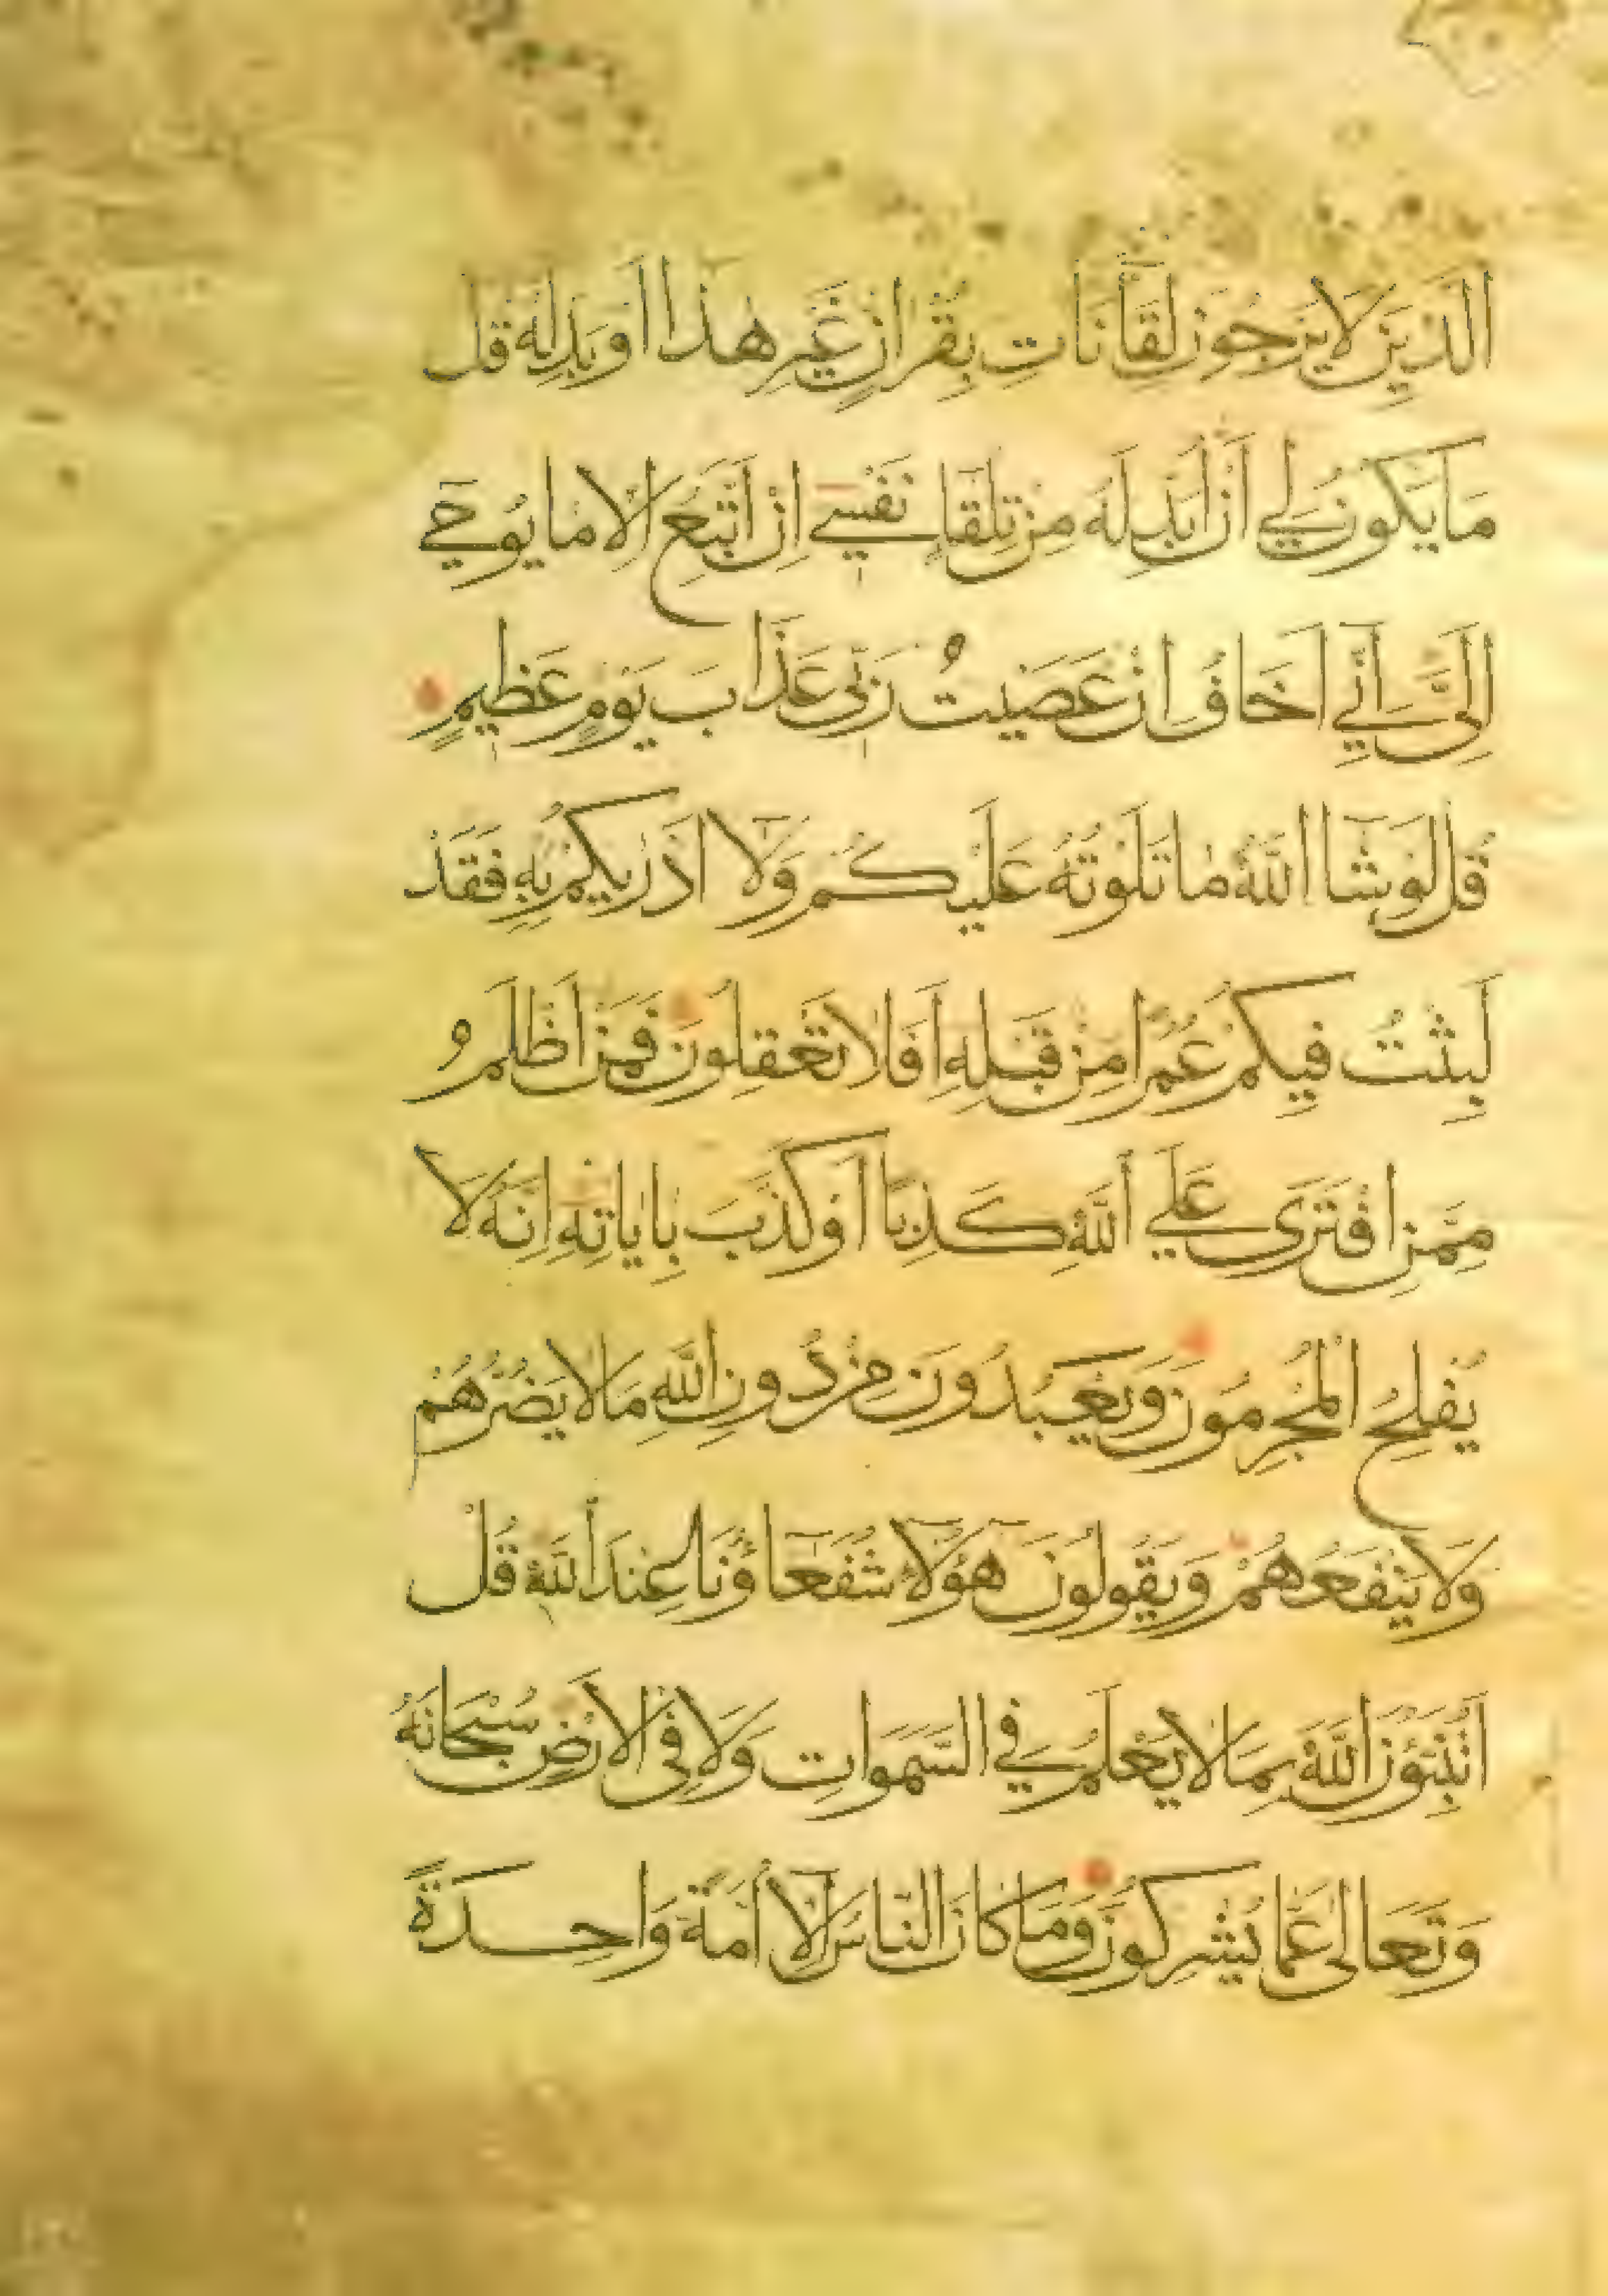 الَّذِيْنَ لَا يَرْجُوْنَ لِقَآنَا ائْتِ بِقُرْاٰنٍ غَيْرِ هٰذَا اَوْ بَدِّلْهُ قُلْ
مَا يَكُوْنُ لِيْ اَنْ اُبَدِّلَهُ مِنْ تِلْقَآءِ نَفْسِيْ اِنْ اَتَّبِعُ اِلَّا مَا يُوْحٰي
اِلَيَّ اِنِّيْ اَخَافُ اِنْ عَصَيْتُ رَبِّيْ عَذَابَ يَوْمٍ عَظِيْمٍ
قُلْ لَوْ شَآ اللّٰهُ مَا تَلَوْتُهُ عَلَيْكُمْ وَلَآ اَدْرٰيكُمْ بِهِ فَقَدْ
لَبِثْتُ فِيْكُمْ عُمُرًا مِنْ قَبْلِهِ اَفَلَا تَعْقِلُوْنَ فَمَنْ اَظْلَمُ
مِمَّنِ افْتَرٰى عَلَي اللّٰهِ كَذِبًا اَوْ كَذَّبَ بِاٰيَاتِهِ اِنَّهُ لَا
يُفْلِحُ الْمُجْرِمُوْنَ وَيَعْبُدُوْنَ مِنْ دُوْنِ اللّٰهِ مَا لَا يَضُرُّهُمْ
وَلَا يَنْفَعُهُمْ وَيَقُوْلُوْنَ هٰٓؤُلَآءِ شُفَعَآؤُنَا عِنْدَ اللّٰهِ قُلْ
اَتُنَبِّؤُنَ اللّٰهَ بِمَا لَا يَعْلَمُ فِي السَّمٰوَاتِ وَلَا فِي الْاَرْضِ سُبْحَانَهُ
وَتَعَالٰى عَمَّا يُشْرِكُوْنَ وَمَا كَانَ النَّاسُ اِلَّآ اُمَّةً وَاحِدَةً